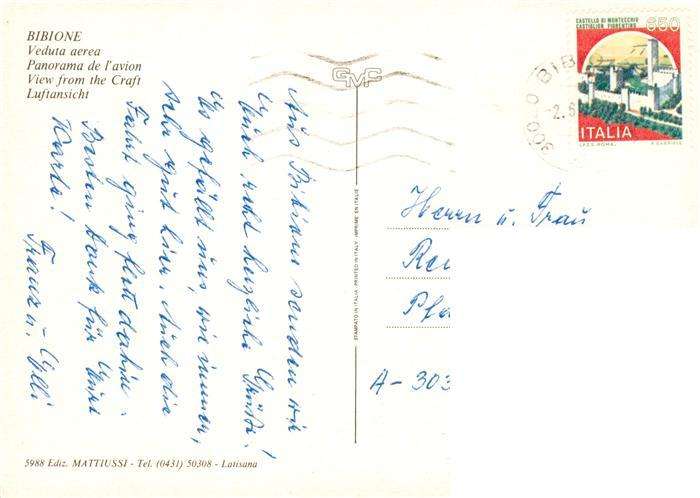 BIBIONE
Veduta aerea
Panorama de l'avion
View from the Craft
Luftansicht
Aus Bibione senden wir
Euch recht herzliche Grüße!
Es gefällt uns, wie immer,
sehr gut hier. Auch die
Fahrt ging flott dahin.
Besten Dank für Eure
Karte!
Franz u.
5988 Ediz. MATTIUSSI - Tel. (0431) 50308 - Latisana
GMC
STAMPATO IN ITALIA - PRINTED IN ITALY - IMPRIME EN ITALIE
CASTELLO DI MONTECCHIO
CASTIGLION FIORENTINO
650
ITALIA
I.P.Z.S. ROMA
BIB
Herrn u. Frau
A-303